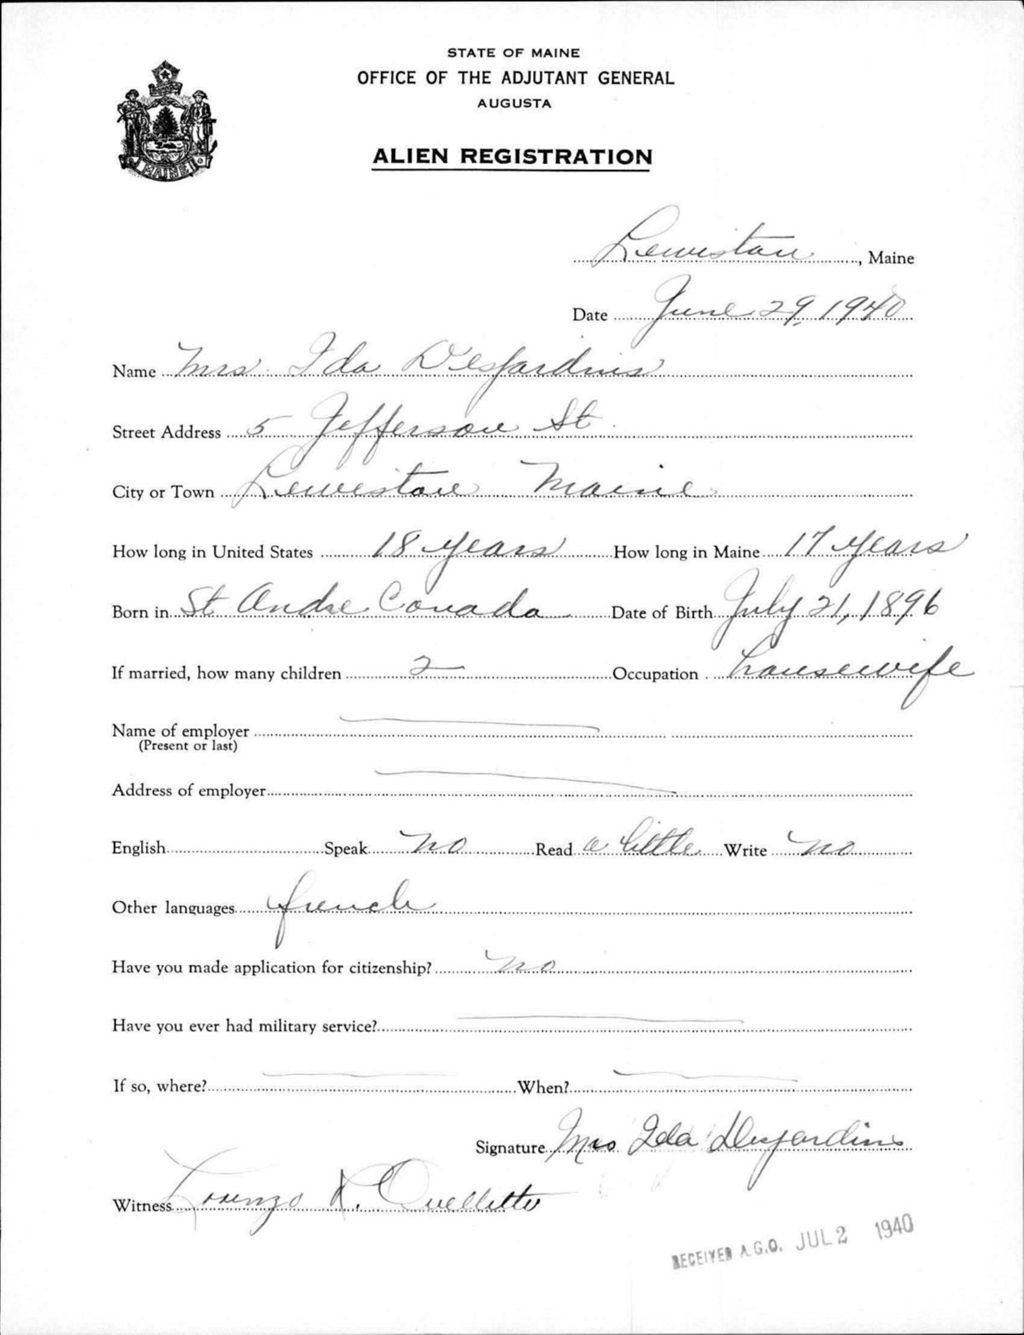 STATE OF MAINE
OFFICE OF THE ADJUTANT GENERAL
AUGUSTA
ALIEN REGISTRATION
MAINE
Lewiston, Maine
Date June 29, 1940
Name Mrs. Ida Desjardins
Street Address 5 Jefferson St.
City or Town Lewiston Maine
How long in United States 18 years How long in Maine 17 years
Born in St. Andre Canada Date of Birth July 21, 1896
If married, how many children 2 Occupation housewife
Name of employer
(Present or last)
Address of employer
English Speak no Read a little Write no
Other languages french
Have you made application for citizenship? no
Have you ever had military service?
If so, where? When?
Signature Mrs Ida Desjardins
Witness Lorenzo R. Ouellette
RECEIVED A.G.O. JUL 2 1940